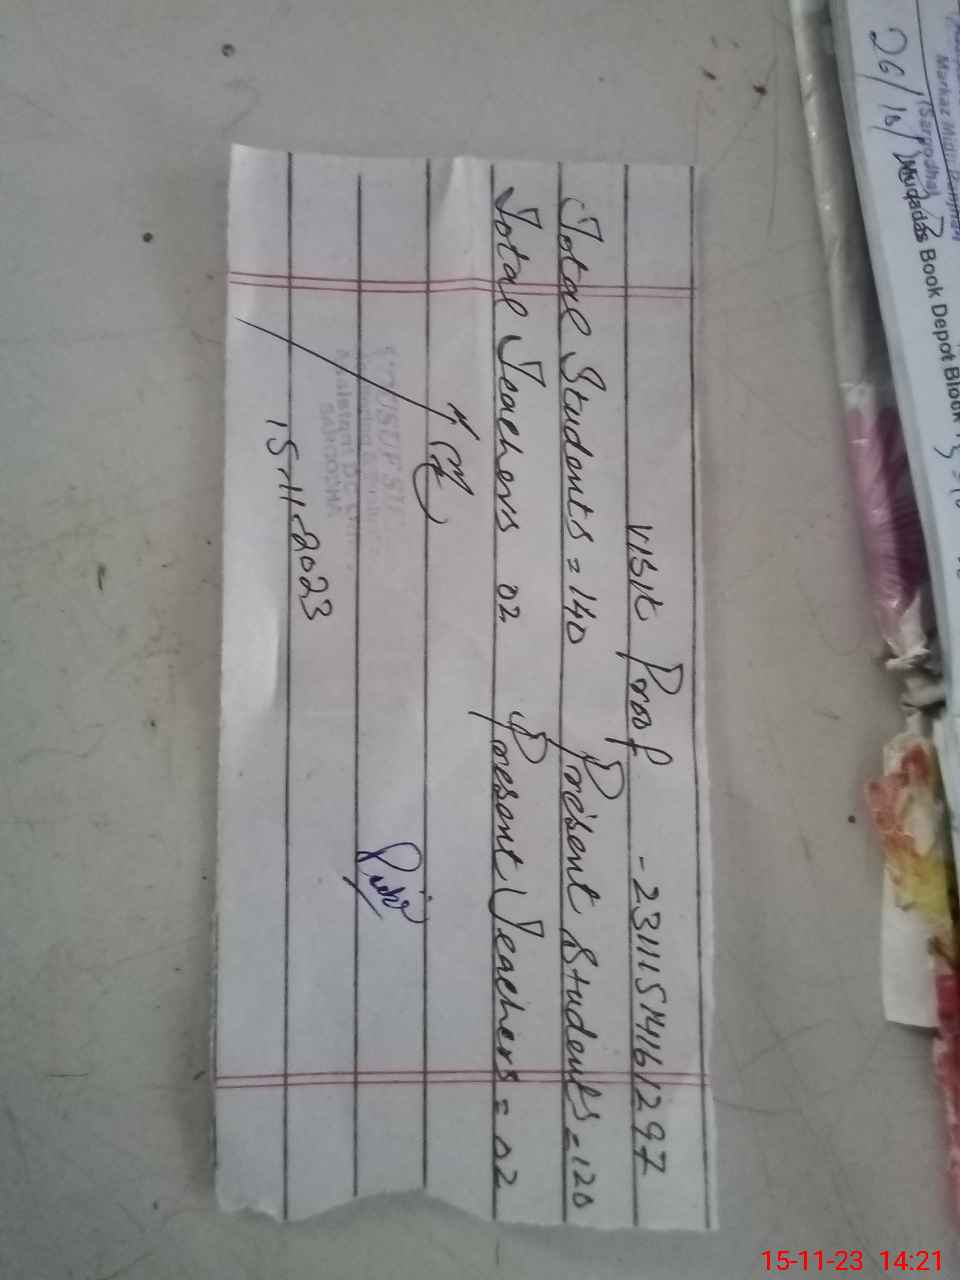 Visit Proof - 23111514161297
Total Students = 140 Present Students = 120
Total Teachers 02 Present Teachers = 02
15-11-2023
SARGODHA
26/10/
Markaz Mitha
(Sargodha)
Muqadas Book Depot Block
15-11-23 14:21